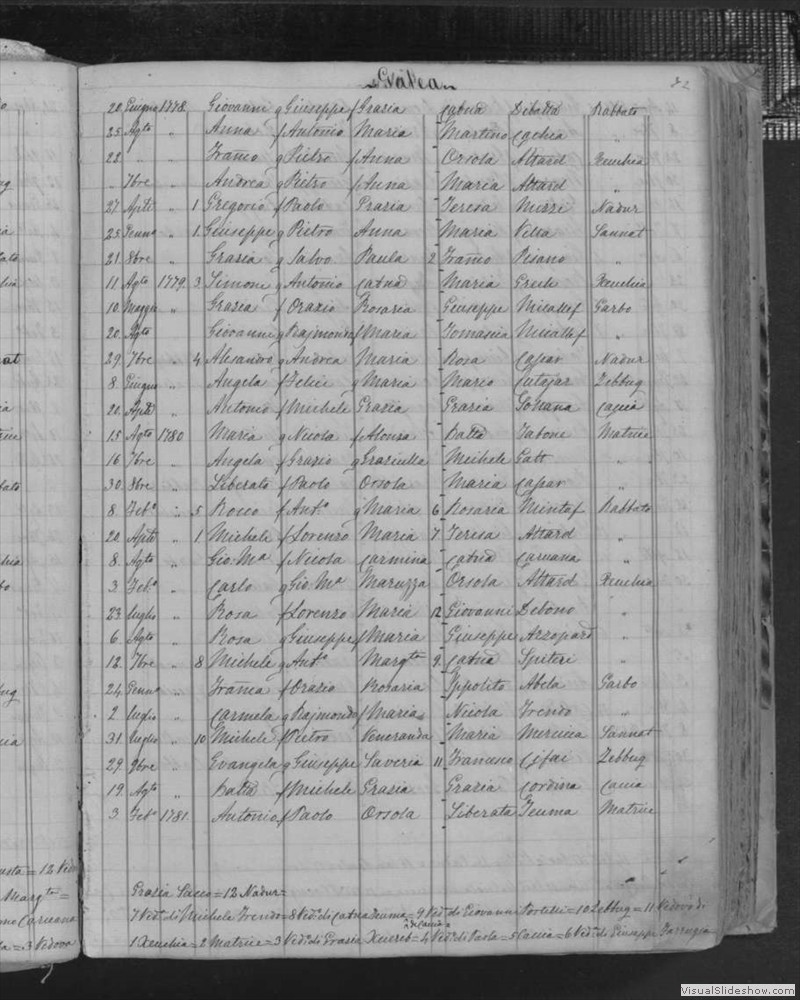 Galea 72
20 Giugno 1778 Giovanni g Giuseppe f Grazia Catna Dibatta Rabbato
25 Agto „ Anna f Antonio Maria Martino Cachia „
22 „ „ Franco g Pietro f Anna Orsola Attard Xeuchia
„ 7bre „ Andrea g Pietro f Anna Maria Attard „
27 Aple „ 1 Gregorio f Paolo Grazia Teresa Mizzi Nadur
25 Genno „ 1 Giuseppe g Pietro Anna Maria Vella Sannat
21 8bre „ Grazia g Salvo Paula 2 Franco Pisano „
11 Agto 1779 3 Simone g Antonio Catna Maria Grech Xeuchia
10 Maggio „ Grazia f Orazio Rosaria Giuseppe Micallef Garbo
20 Agto „ Giovanni g Rajmondo f Maria Tomasia Micallef „
29 7bre „ 4 Alesandro g Andrea Maria Rosa Capar Nadur
8 Giugno „ Angela f Felici g Maria Mario Cutajar Zebbug
20 Aple „ Antonio f Michele Grazia Grazia Cauia
15 Agto 1780 Maria g Nicola f Alonza Batta Tabone Matrice
16 7bre „ Angela f Grazio g Graziulla Michele Gatt „
30 8bre „ Liberato f Paolo Orsola Maria Capar „
8 Febo „ 5 Rocco f Anto g Maria 6 Rosaria Mintaf Rabbato
20 Aple „ 1 Michele f Lorenzo Maria 7 Teresa Attard „
8 Agto „ Gio Ma f Nicola Carmina Catna Caruana „
3 Febo „ Carlo g Gio Ma Maruzza Orsola Attard Xeuchia
23 Luglio „ Rosa f Lorenzo Maria 12 Giovanni Debono „
6 Agto „ Rosa g Giuseppe f Maria Giuseppe Azzopard „
12 7bre „ 8 Michele g Anto Margta 9 Catna Spiteri „
24 Genno „ Franca f Orazio Rosaria Ippolito Abela Garbo
2 Luglio „ Carmela g Rajmondo f Maria Nicola Trendo „
31 Luglio „ 10 Michele f Pietro Veneranda Maria Mercica Sannat
29 9bre „ Evangela g Giuseppe Saveria 11 Francesco Cifai Zebbug
19 Agto „ Batta f Michele Grazia Grazia Cordina Cauia
3 Febo 1781 Antonio f Paolo Orsola Liberata Teuma Matrice
Grazia Sacco = 12 Nadur =
7 Veda di Michele Trendo = 8 Veda di Catna Teuma = 9 Veda di Giovanni Portelli = 10 Zebbug = 11 Vedovo di
1 Xeuchia = 2 Matrice = 3 Veda di Grazia Xuereb = 4 Veda di Paola = 5 Cauia = 6 Veda di Giuseppe Farrugia
VisualSlideshow.com